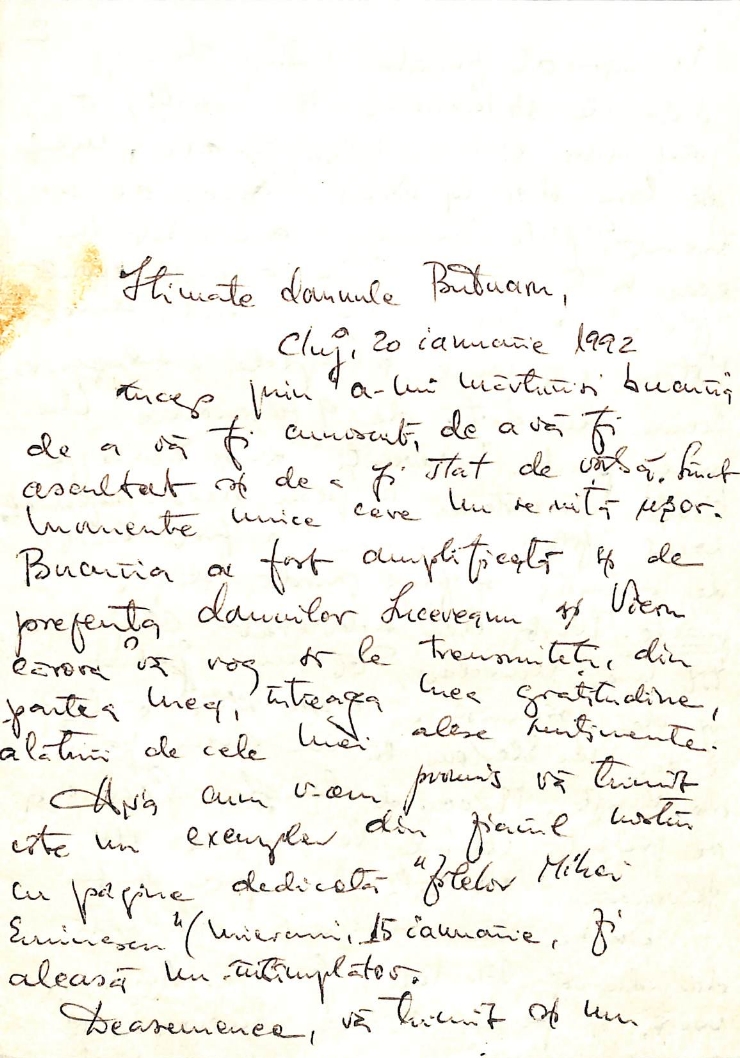 Stimate domnule Butnaru,
Cluj, 20 ianuarie 1992
Încep prin a-mi mărturisi bucuria
de a vă fi cunoscut, de a vă fi
ascultat și de a fi stat de vorbă. Sînt
momente unice care nu se uită ușor.
Bucuria a fost amplificată și de
prezența domnilor Suceveanu și Vieru
cărora vă rog să le transmiteți, din
partea mea, întreaga mea gratitudine,
alături de cele mai alese sentimente.
Așa cum v-am promis vă trimit
cîte un exemplar din ziarul nostru
cu pagina dedicată "Zilelor Mihai
Eminescu" (miercuri, 15 ianuarie, zi
aleasă nu întîmplător.
Deasemenea, vă trimit și un